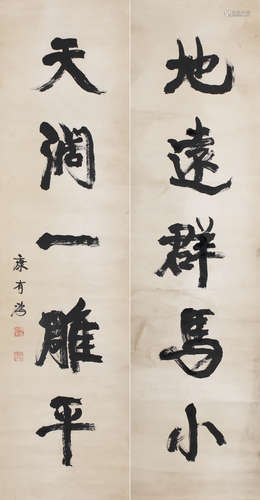 地遠群馬小
天濶一雕平
康有為